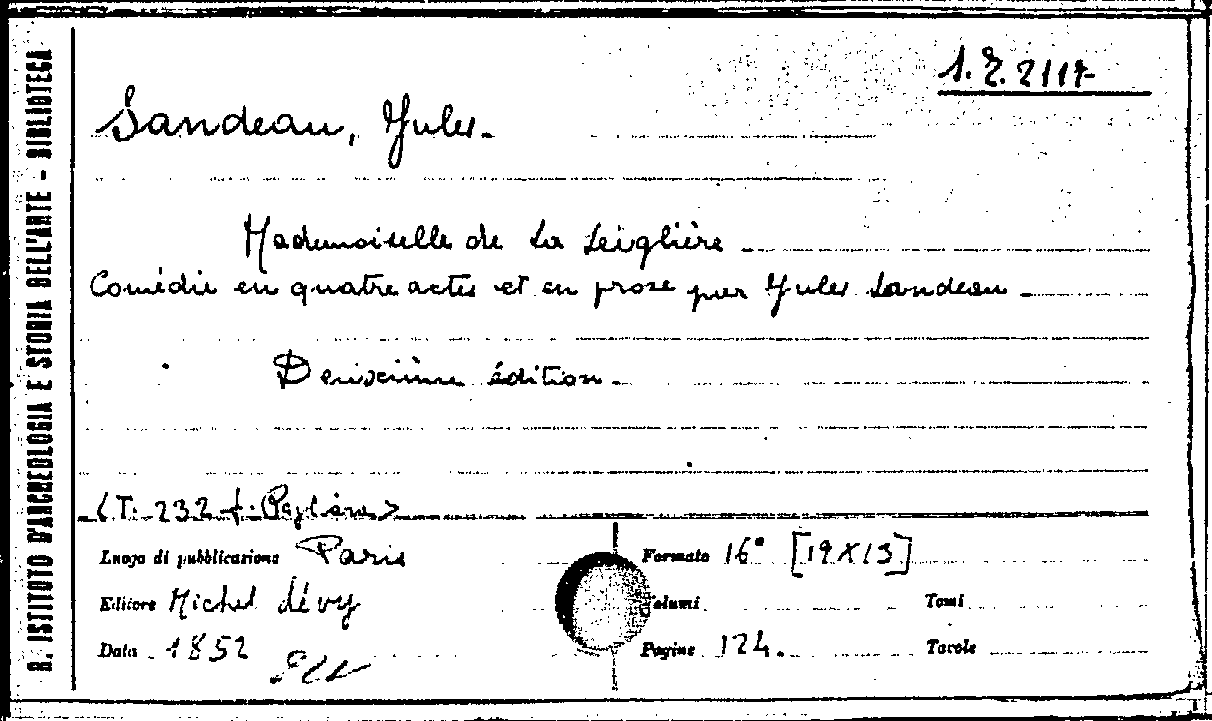 R. ISTITUTO D'ARCHEOLOGIA E STORIA DELL'ARTE - BIBLIOTECA
Sandeau, Jules.
Mademoiselle de La Seiglière
Comédie en quatre actes et en prose par Jules Sandeau
Deuxième édition
(T. 232
Luogo di pubblicazione Paris
Formato 16° [19X13]
Editore Michel Lévy
Volumi
Tomi
Data 1852
Pagine 124.
Tavole